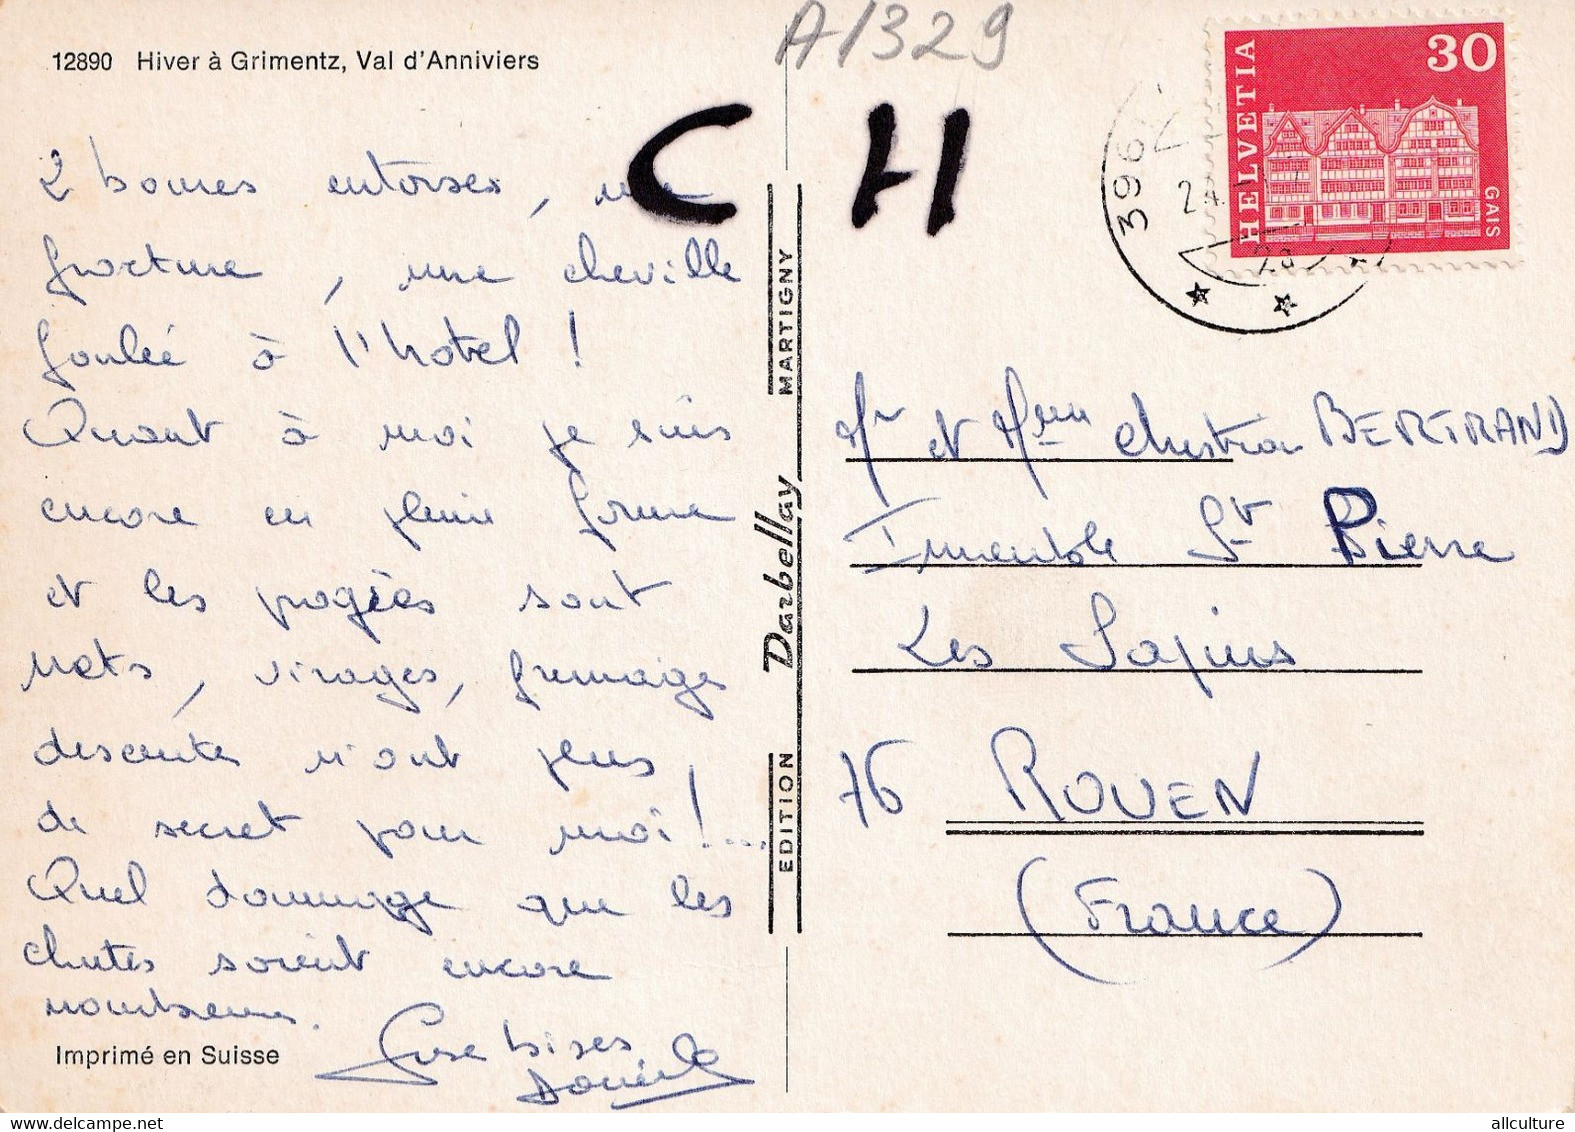 12890 Hiver à Grimentz, Val d'Anniviers
A1329
C H
2 bonnes entorses, une
fracture, une cheville
foulée à l'hotel !
Quant à moi je suis
encore en pleine forme
et les progrès sont
nets, virages, freinage
descente n'ont plus
de secret pour moi !...
Quel dommage que les
chutes soient encore
nombreuses.
Grose bises
Imprimé en Suisse
EDITION Darbellay MARTIGNY
HELVETIA
30
GAIS
396
Mr et Mme Christian BERTRAND
Immeuble St Pierre
Les Sapins
76 ROUEN
(France)
allculture